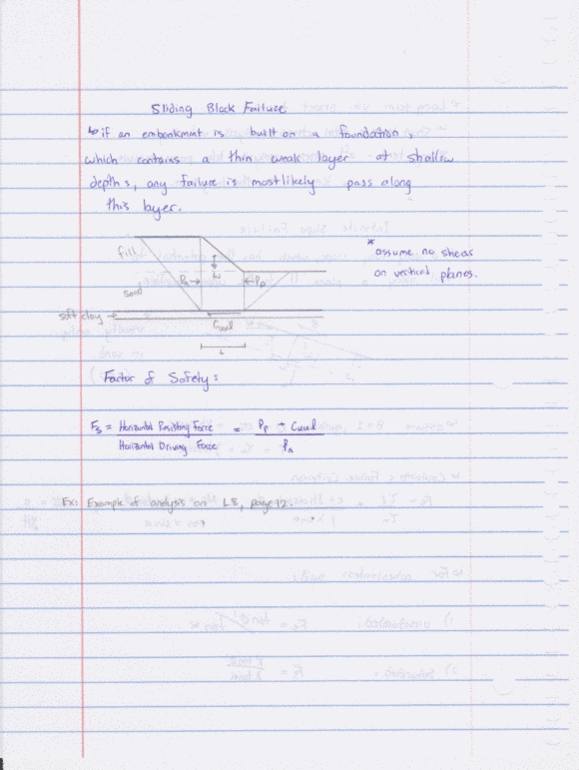 Sliding Block Failure
↳ if an embankment is built on a foundation,
which contains a thin weak layer at shallow
depths, any failure is most likely pass along
this layer.
fill
* assume no shear
on vertical planes.
PA → W ← Pp
sand
soft clay →
L
Factor of Safety:
Fs = Horizontal Resisting Force = Pp +
Horizontal Driving Force PA
Ex: Example of analysis on L8, page 12.